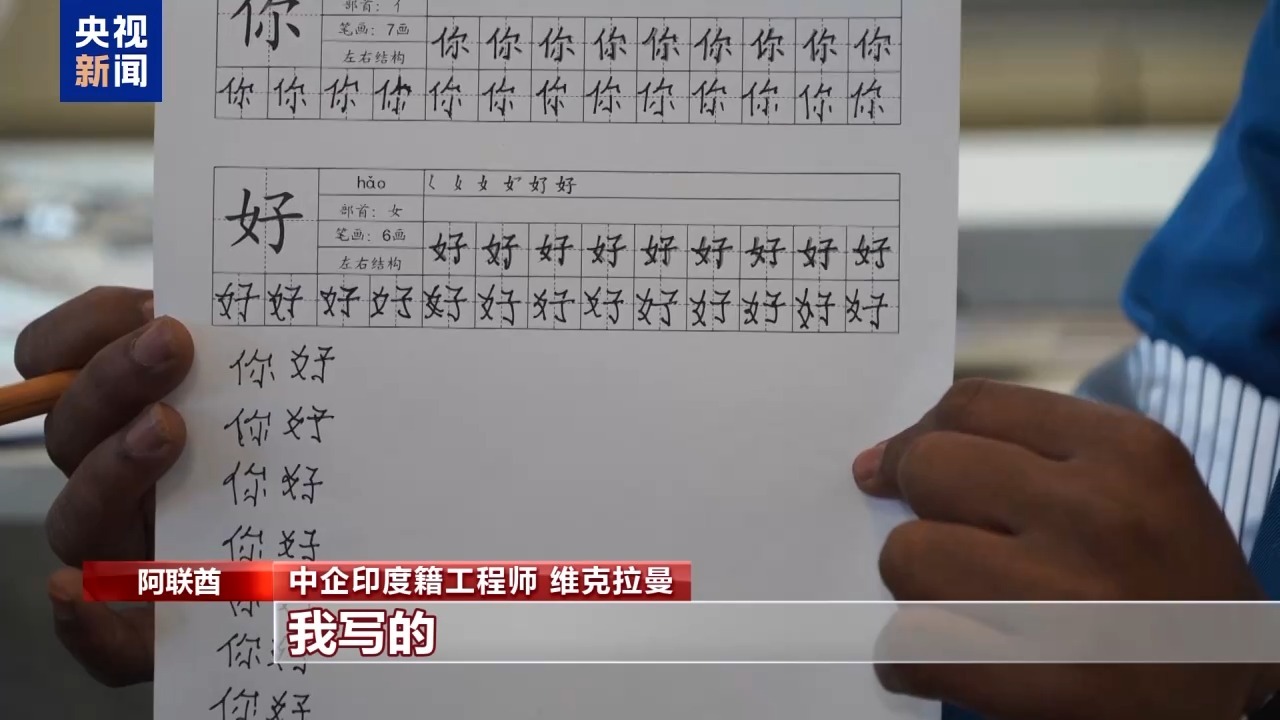 央视
新闻
你
部首：亻
笔画：7画
左右结构
你 你 你 你 你 你 你 你 你
你 你 你 你 你 你 你 你 你 你 你 你 你
好
hǎo
部首：女
笔画：6画
左右结构
好 好 好 好 好 好 好 好 好
好 好 好 好 好 好 好 好 好 好 好 好 好
你好
你好
你好
你好
你好
你好
阿联酋
中企印度籍工程师 维克拉曼
我写的